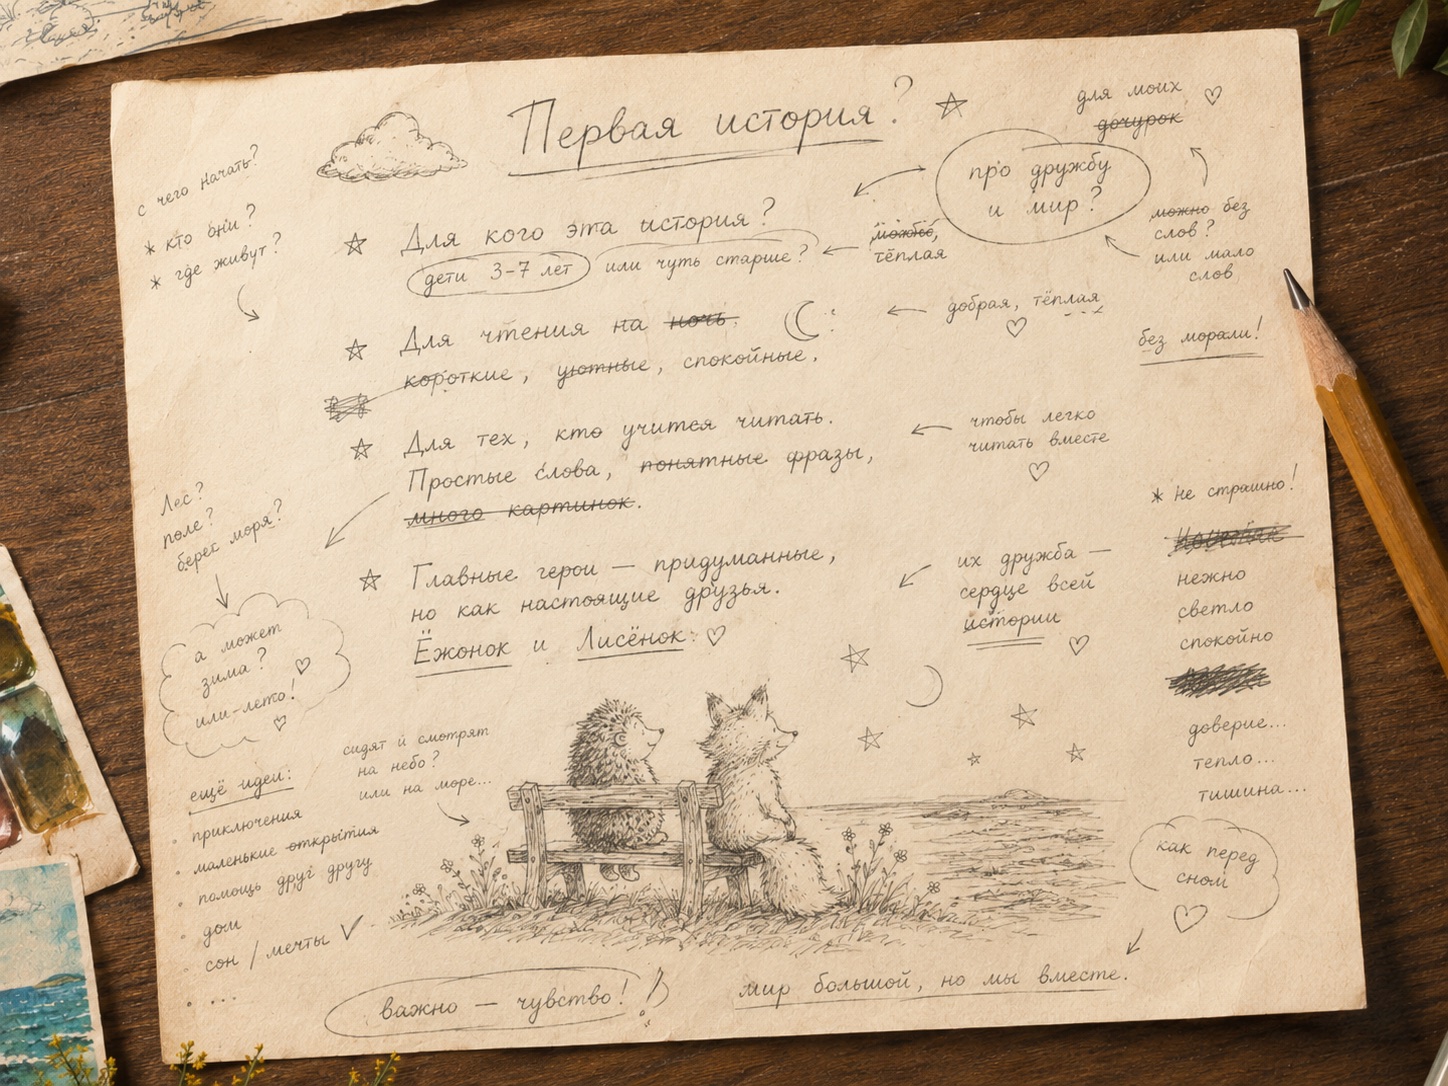 Первая история?
для моих
дочурок
с чего начать?
* кто они?
* где живут?
про дружбу
и мир?
можно без
слов?
или мало
слов
Для кого эта история?
дети 3-7 лет или чуть старше?
тёплая
Для чтения на ночь.
короткие, уютные, спокойные.
добрая, тёплая
без морали!
Для тех, кто учится читать.
Простые слова, понятные фразы,
много картинок.
чтобы легко
читать вместе
Лес?
поле?
берег моря?
* не страшно!
нежно
светло
спокойно
доверие...
тепло...
тишина...
Главные герои — придуманные,
но как настоящие друзья.
Ёжонок и Лисёнок
их дружба —
сердце всей
истории
а может
зима?
или-лето!
сидят и смотрят
на небо?
или на море...
ещё идеи:
• приключения
• маленькие открытия
• помощь друг другу
• дом
• сон / мечты
• ...
как перед
сном
важно — чувство!
мир большой, но мы вместе.